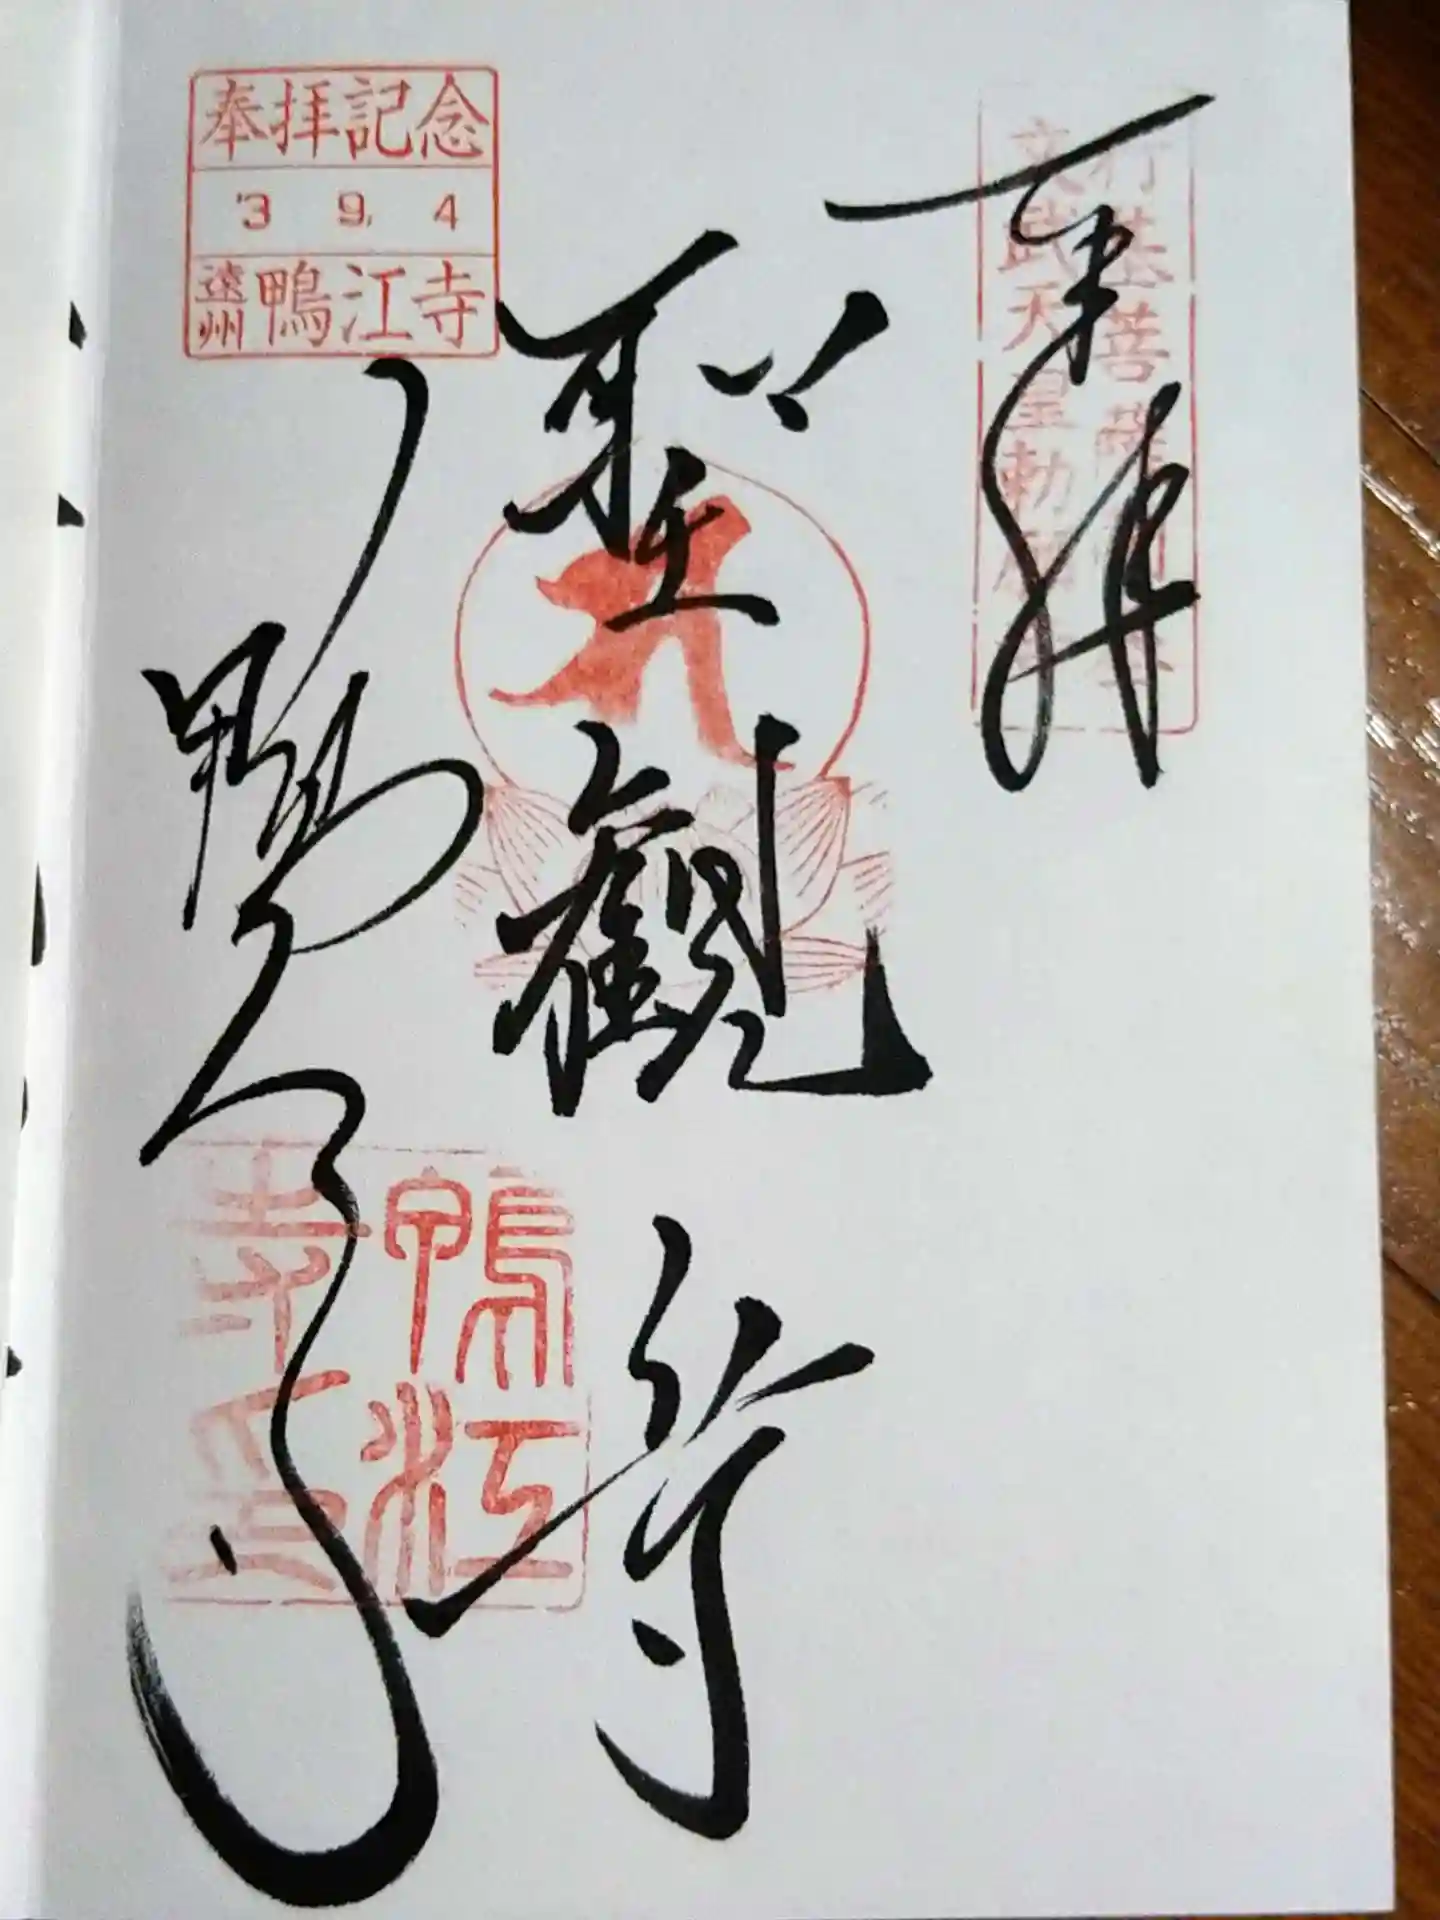 奉拝
行基菩薩開基
文武天皇勅願
聖観音
鴨江寺
奉拝記念
'3 9. 4
遠州鴨江寺
鴨江
寺印